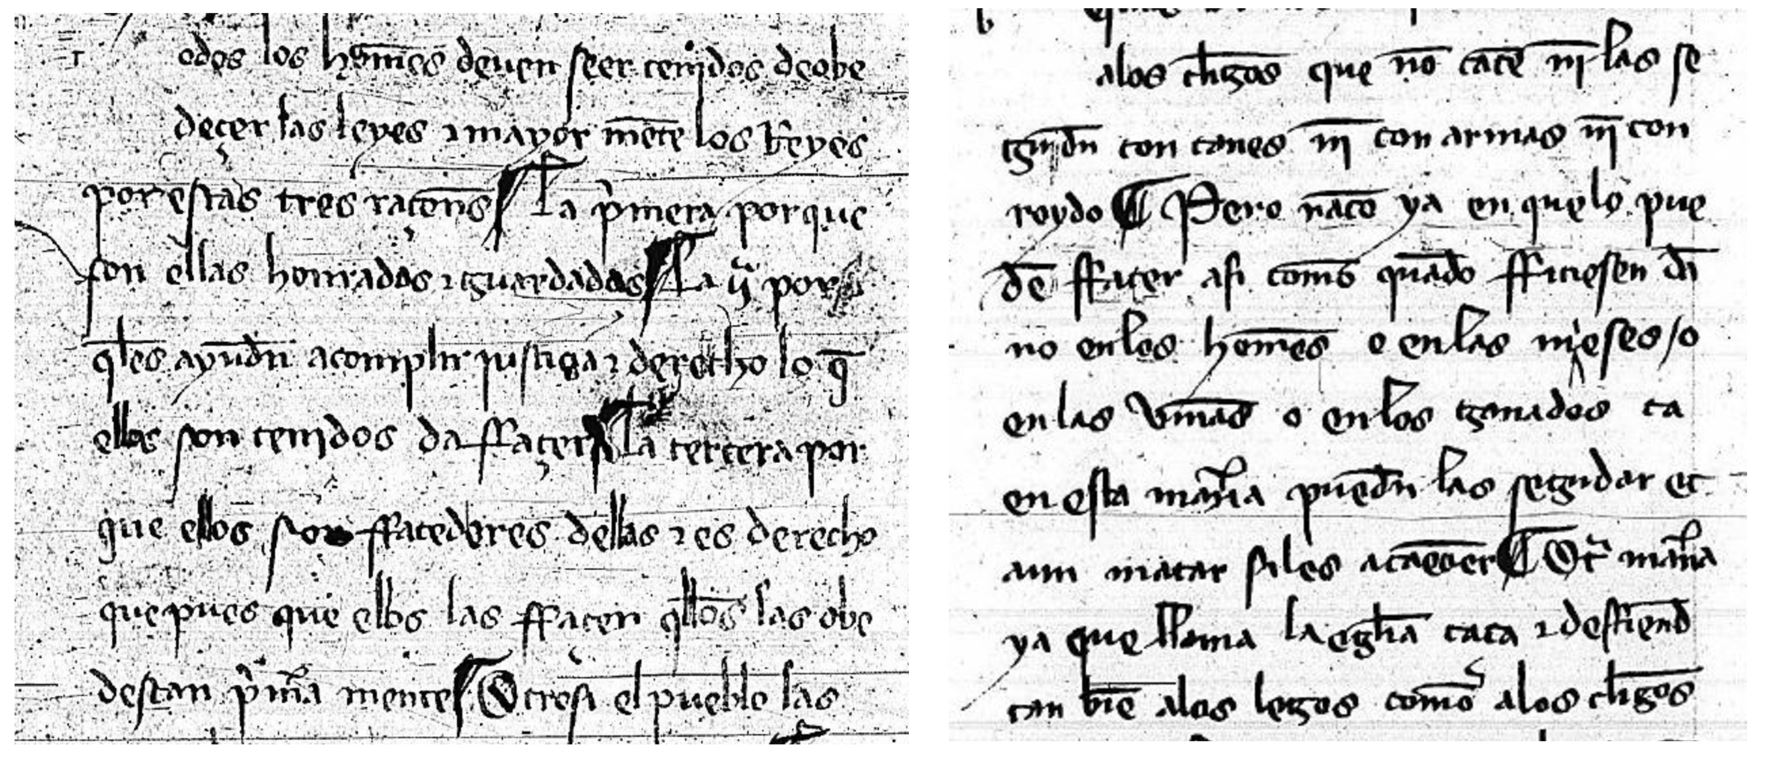 odos los hom̅es deuen seer tenjdos deobe
deçer las leyes ⁊ mayor m̅ete los Reyes
por estas tres raçon̅s ¶ La p̍mera porque
son ellas honrradas ⁊ guardadas ¶ La ij̅ por
q̅les ayud̅n acomplir justiçia ⁊ derecho lo q̅
ellos son tenjdos da ffaçer ¶ La terçera por
que ellos son ffacedores dellas ⁊ es derecho
que pues que ellos las ffacen q̅llos las obe
descan p̍m̅a mente ¶ Otrosi el pueblo las
alos cl̅igos que no̅ cace̅ nj̅ las se
gujd̅n con canes nj̅ con armas nj̅ con
roydo ¶ Pero rraço̅ ya en que lo pue
de̅ ffaçer asi como̅ qua̅do fficiesen da̅
no en los hom̅es o en las mjeses / o
en las vin̅as o en los ganados ca
en esta man̅a pued̅n las segudar et
aun matar si les acaeçier ¶ Otr̅ man̅a
ya que llama la egl̅ia caca ⁊ deffiend̅
tan bie̅ alos legos como̅ alos cl̅igos